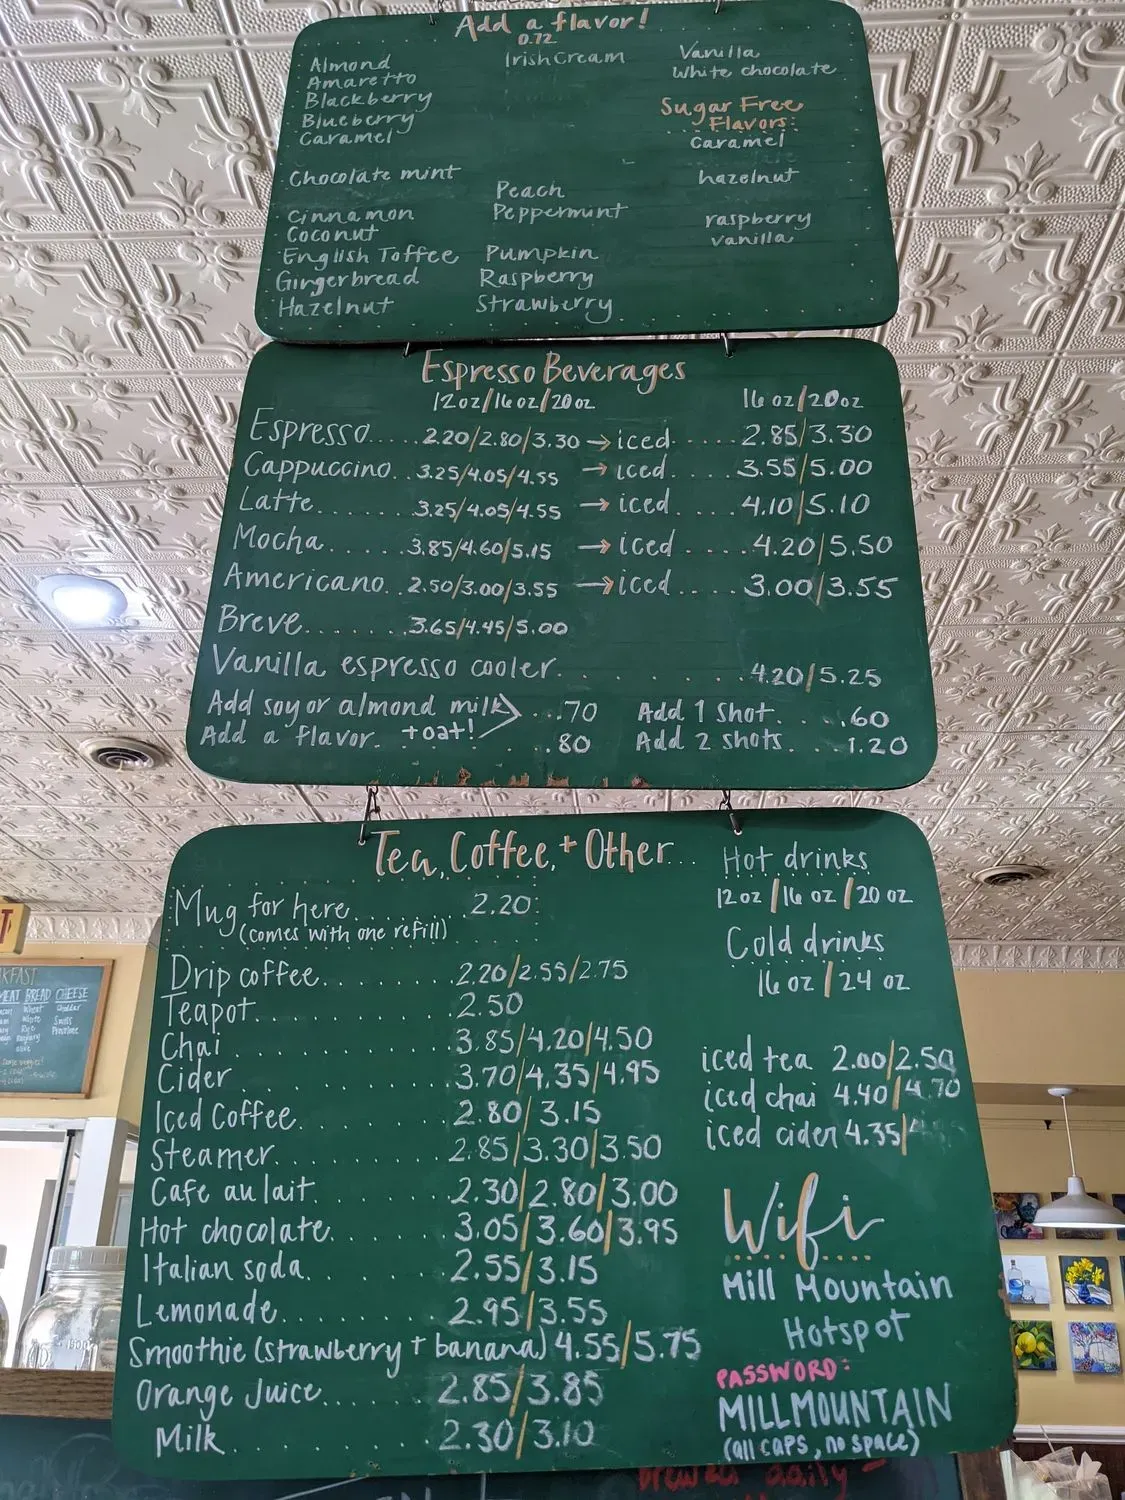 Add a flavor!
0.72
Almond
Amaretto
Blackberry
Blueberry
Caramel
Chocolate mint
Cinnamon
Coconut
English Toffee
Gingerbread
Hazelnut
Irish Cream
Peach
Peppermint
Pumpkin
Raspberry
Strawberry
Vanilla
White chocolate
Sugar Free
Flavors:
caramel
hazelnut
raspberry
vanilla
Espresso Beverages
12oz/16oz/20oz 16oz/20oz
Espresso.....2.20/2.80/3.30 → iced.....2.85/3.30
Cappuccino..3.25/4.05/4.55 → iced.....3.55/5.00
Latte.......3.25/4.05/4.55 → iced.....4.10/5.10
Mocha.....3.85/4.60/5.15 → iced.....4.20/5.50
Americano..2.50/3.00/3.55 → iced.....3.00/3.55
Breve......3.65/4.45/5.00
Vanilla espresso cooler........4.20/5.25
Add soy or almond milk ...70 Add 1 shot.....60
+oat!
Add a flavor.....80 Add 2 shots....1.20
Tea, Coffee, + Other...
Mug for here.......2.20
(comes with one refill)
Drip coffee.......2.20/2.55/2.75
Teapot..........2.50
Chai...........3.85/4.20/4.50
Cider..........3.70/4.35/4.95
Iced Coffee.......2.80/3.15
Steamer.........2.85/3.30/3.50
Cafe au lait.......2.30/2.80/3.00
Hot chocolate......3.05/3.60/3.95
Italian soda.......2.55/3.15
Lemonade........2.95/3.55
Smoothie (strawberry + banana) 4.55/5.75
Orange Juice......2.85/3.85
Milk..........2.30/3.10
Hot drinks
12oz/16oz/20oz
Cold drinks
16oz/24oz
iced tea 2.00/2.50
iced chai 4.40/4.70
iced cider 4.35/
Wifi
Mill Mountain
Hotspot
PASSWORD:
MILLMOUNTAIN
(all caps, no space)
MEAT BREAD CHEESE
Wheat
White
Rye
Cheddar
Swiss
Provolone
brewed daily